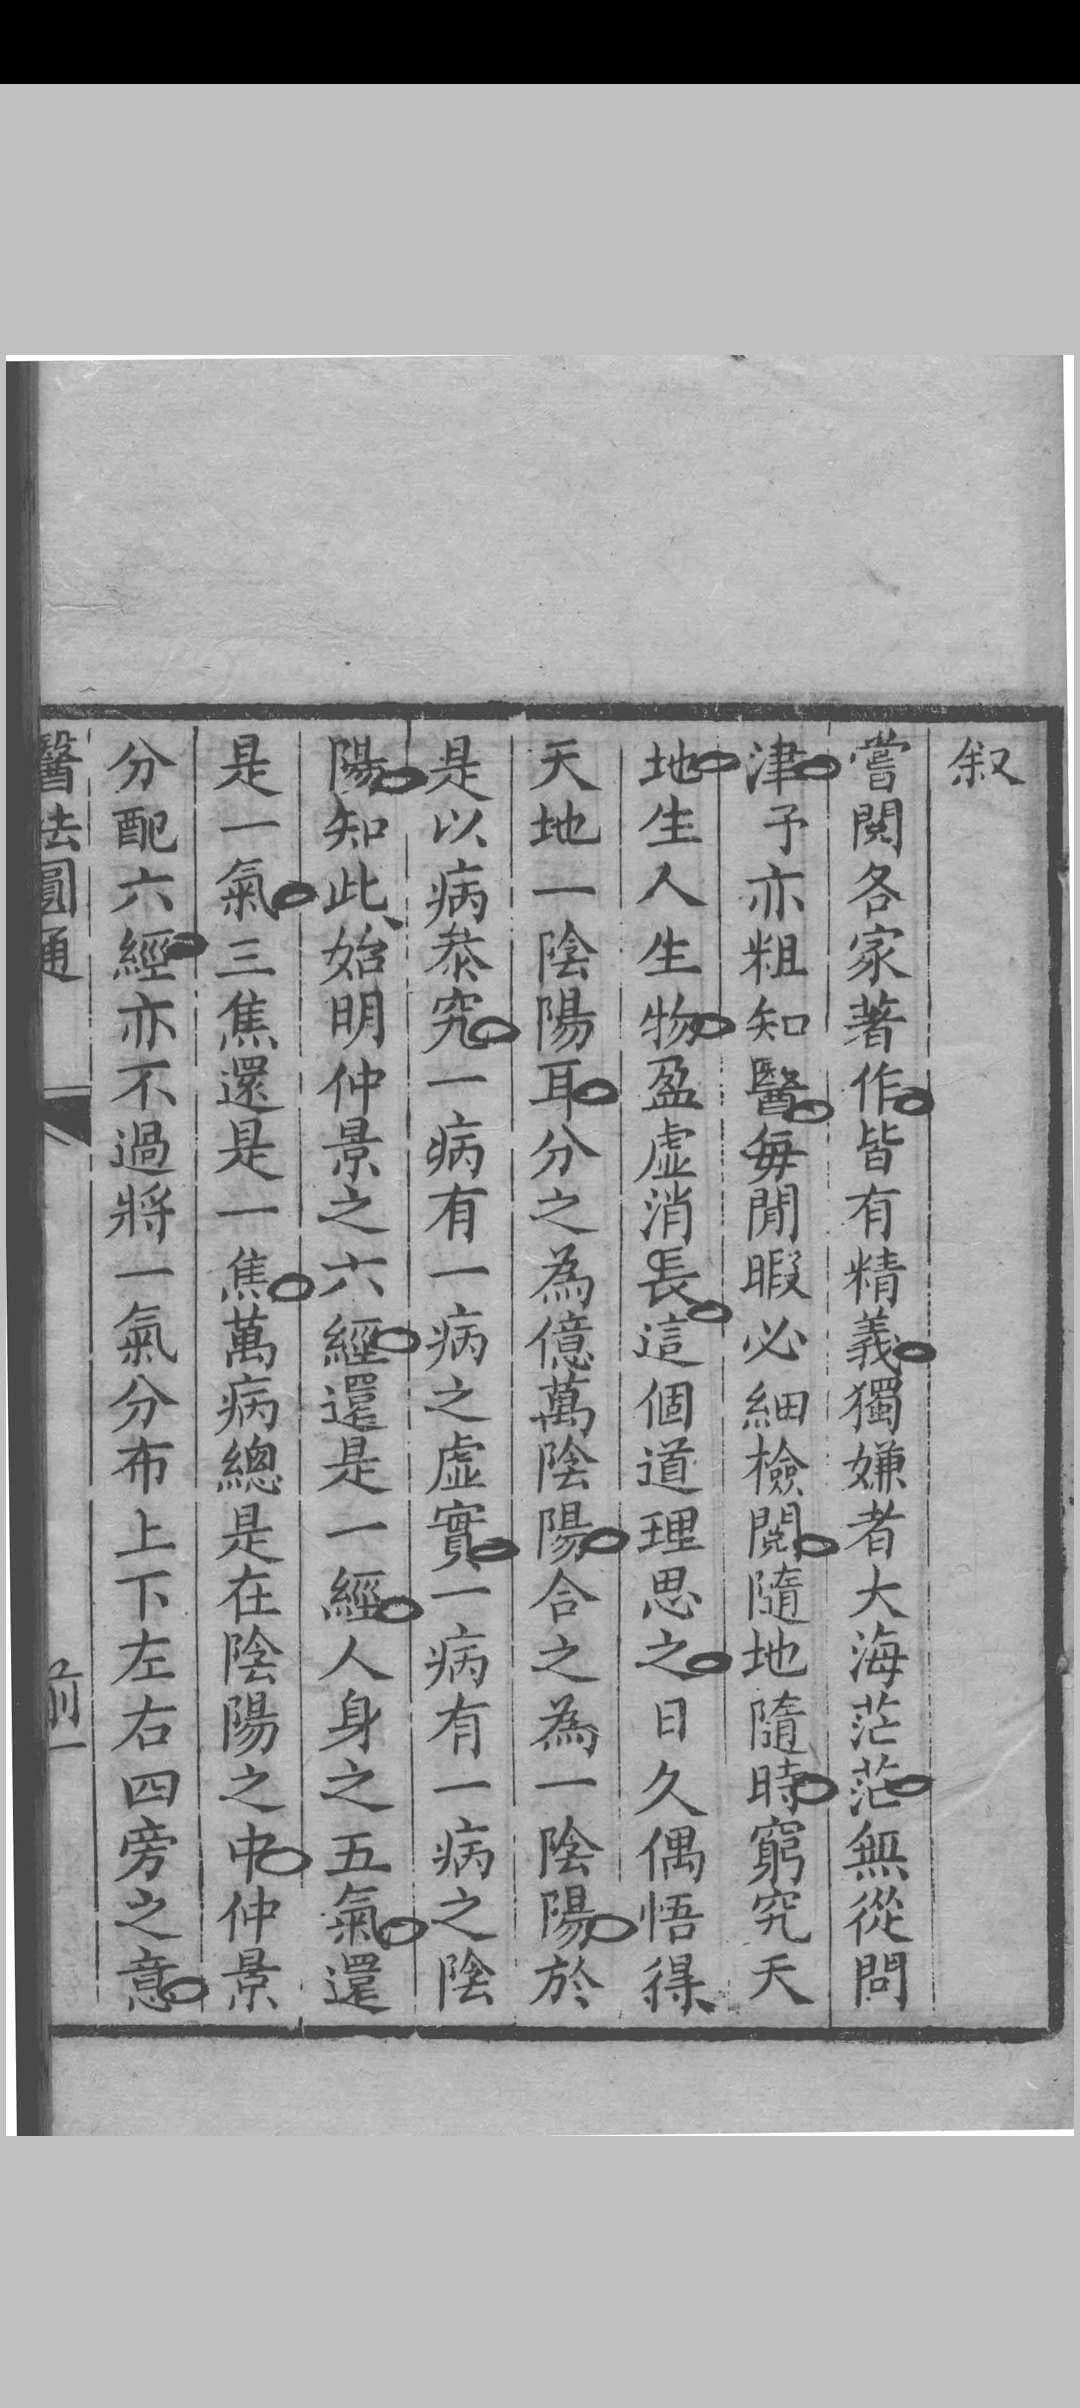 叙
嘗閱各家著作皆有精義獨嫌者大海茫茫無從問
津予亦粗知醫每閒暇必細檢閱隨地隨時窮究天
地生人生物盈虛消長這個道理思之日久偶悟得
天地一陰陽耳分之為億萬陰陽合之為一陰陽於
是以病叅究一病有一病之虛實一病有一病之陰
陽知此始明仲景之六經還是一經人身之五氣還
是一氣三焦還是一焦萬病總是在陰陽之中仲景
分配六經亦不過將一氣分布上下左右四旁之意
醫法圓通 前一